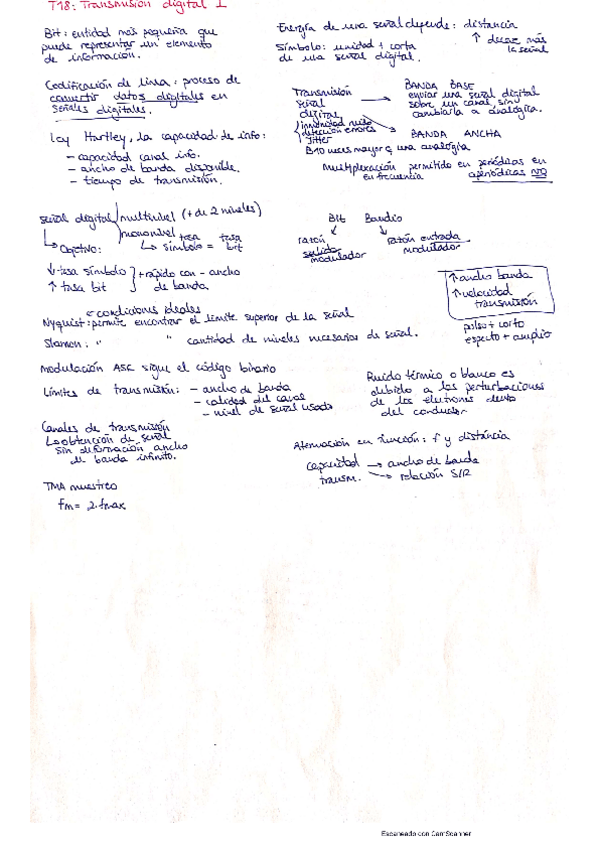 T18: Transmisión digital I
Bit: entidad más pequeña que
puede representar un elemento
de información.
Codificación de línea: proceso de
convertir datos digitales en
señales digitales.
Ley Hartley, la capacidad de info:
- capacidad canal info.
- ancho de banda disponible.
- tiempo de transmisión.
Energía de una señal depende: distancia
↑ decae más
la señal
Símbolo: unidad + corta
de una señal digital.
Transmisión
señal
digital
inmunidad ruido
detección errores
Jitter
→ BANDA BASE
enviar una señal digital
sobre un canal, sin
cambiarla a analógica.
→ BANDA ANCHA
B 10 veces mayor q una analógica
Multiplexación permitido en periódicas en
en frecuencia aperiódicas NO
señal digital multinivel (+ de 2 niveles)
mononivel tasa tasa
↳ símbolo = bit
↳ Objetivo:
↓ tasa símbolo
↑ tasa bit
+ rápido con - ancho
de banda.
Bit Baudio
razón
salida
modulador
razón entrada
modulador
↑ ancho banda
↑ velocidad
transmisión
pulso + corto
espectro + amplio
condiciones ideales
Nyquist: permite encontrar el límite superior de la señal
Shannon: " " cantidad de niveles necesarios de señal.
Modulación ASK sigue el código binario
Límites de transmisión: - ancho de banda
- calidad del canal
- nivel de señal usado
Ruido térmico o blanco es
debido a las perturbaciones
de los electrones dentro
del conductor
Canales de transmisión
La obtención de señal
sin deformación ancho
de banda infinito.
Atenuación en función: f y distancia
capacidad → ancho de banda
transm. → relación S/R
TMA muestreo
fm = 2·fmax
Escaneado con CamScanner